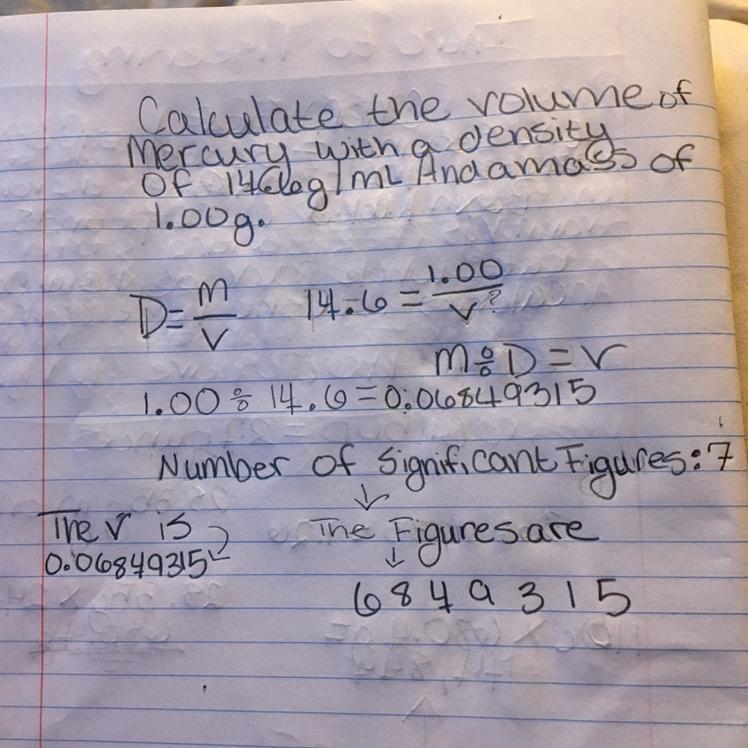 Calculate the volume of
Mercury with a density
Of 14.6g/mL And a mass of
1.00g.
D=m/V 14.6=1.00/V?
m÷D=V
1.00÷14.6=0.06849315
Number of Significant Figures:7
The V is
0.06849315
The Figures are
6849315